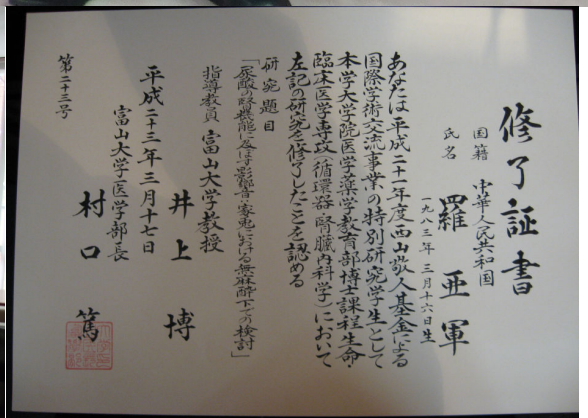 修了証書
国籍 中華人民共和国
氏名 羅亜軍
一九八三年三月十六日生
あなたは平成二十一年度西山敬人基金による
国際学術交流事業の特別研究学生として
本学大学院医学薬学教育部博士課程生命・
臨床医学専攻（循環器・腎臓内科学）において
左記の研究を修了したことを認める
研究題目
「尿酸の腎機能に及ぼす影響-家兎における無麻酔下での検討」
指導教員 富山大学教授 井上博
平成二十三年三月十七日
富山大学医学部長 村口篤
第二十三号